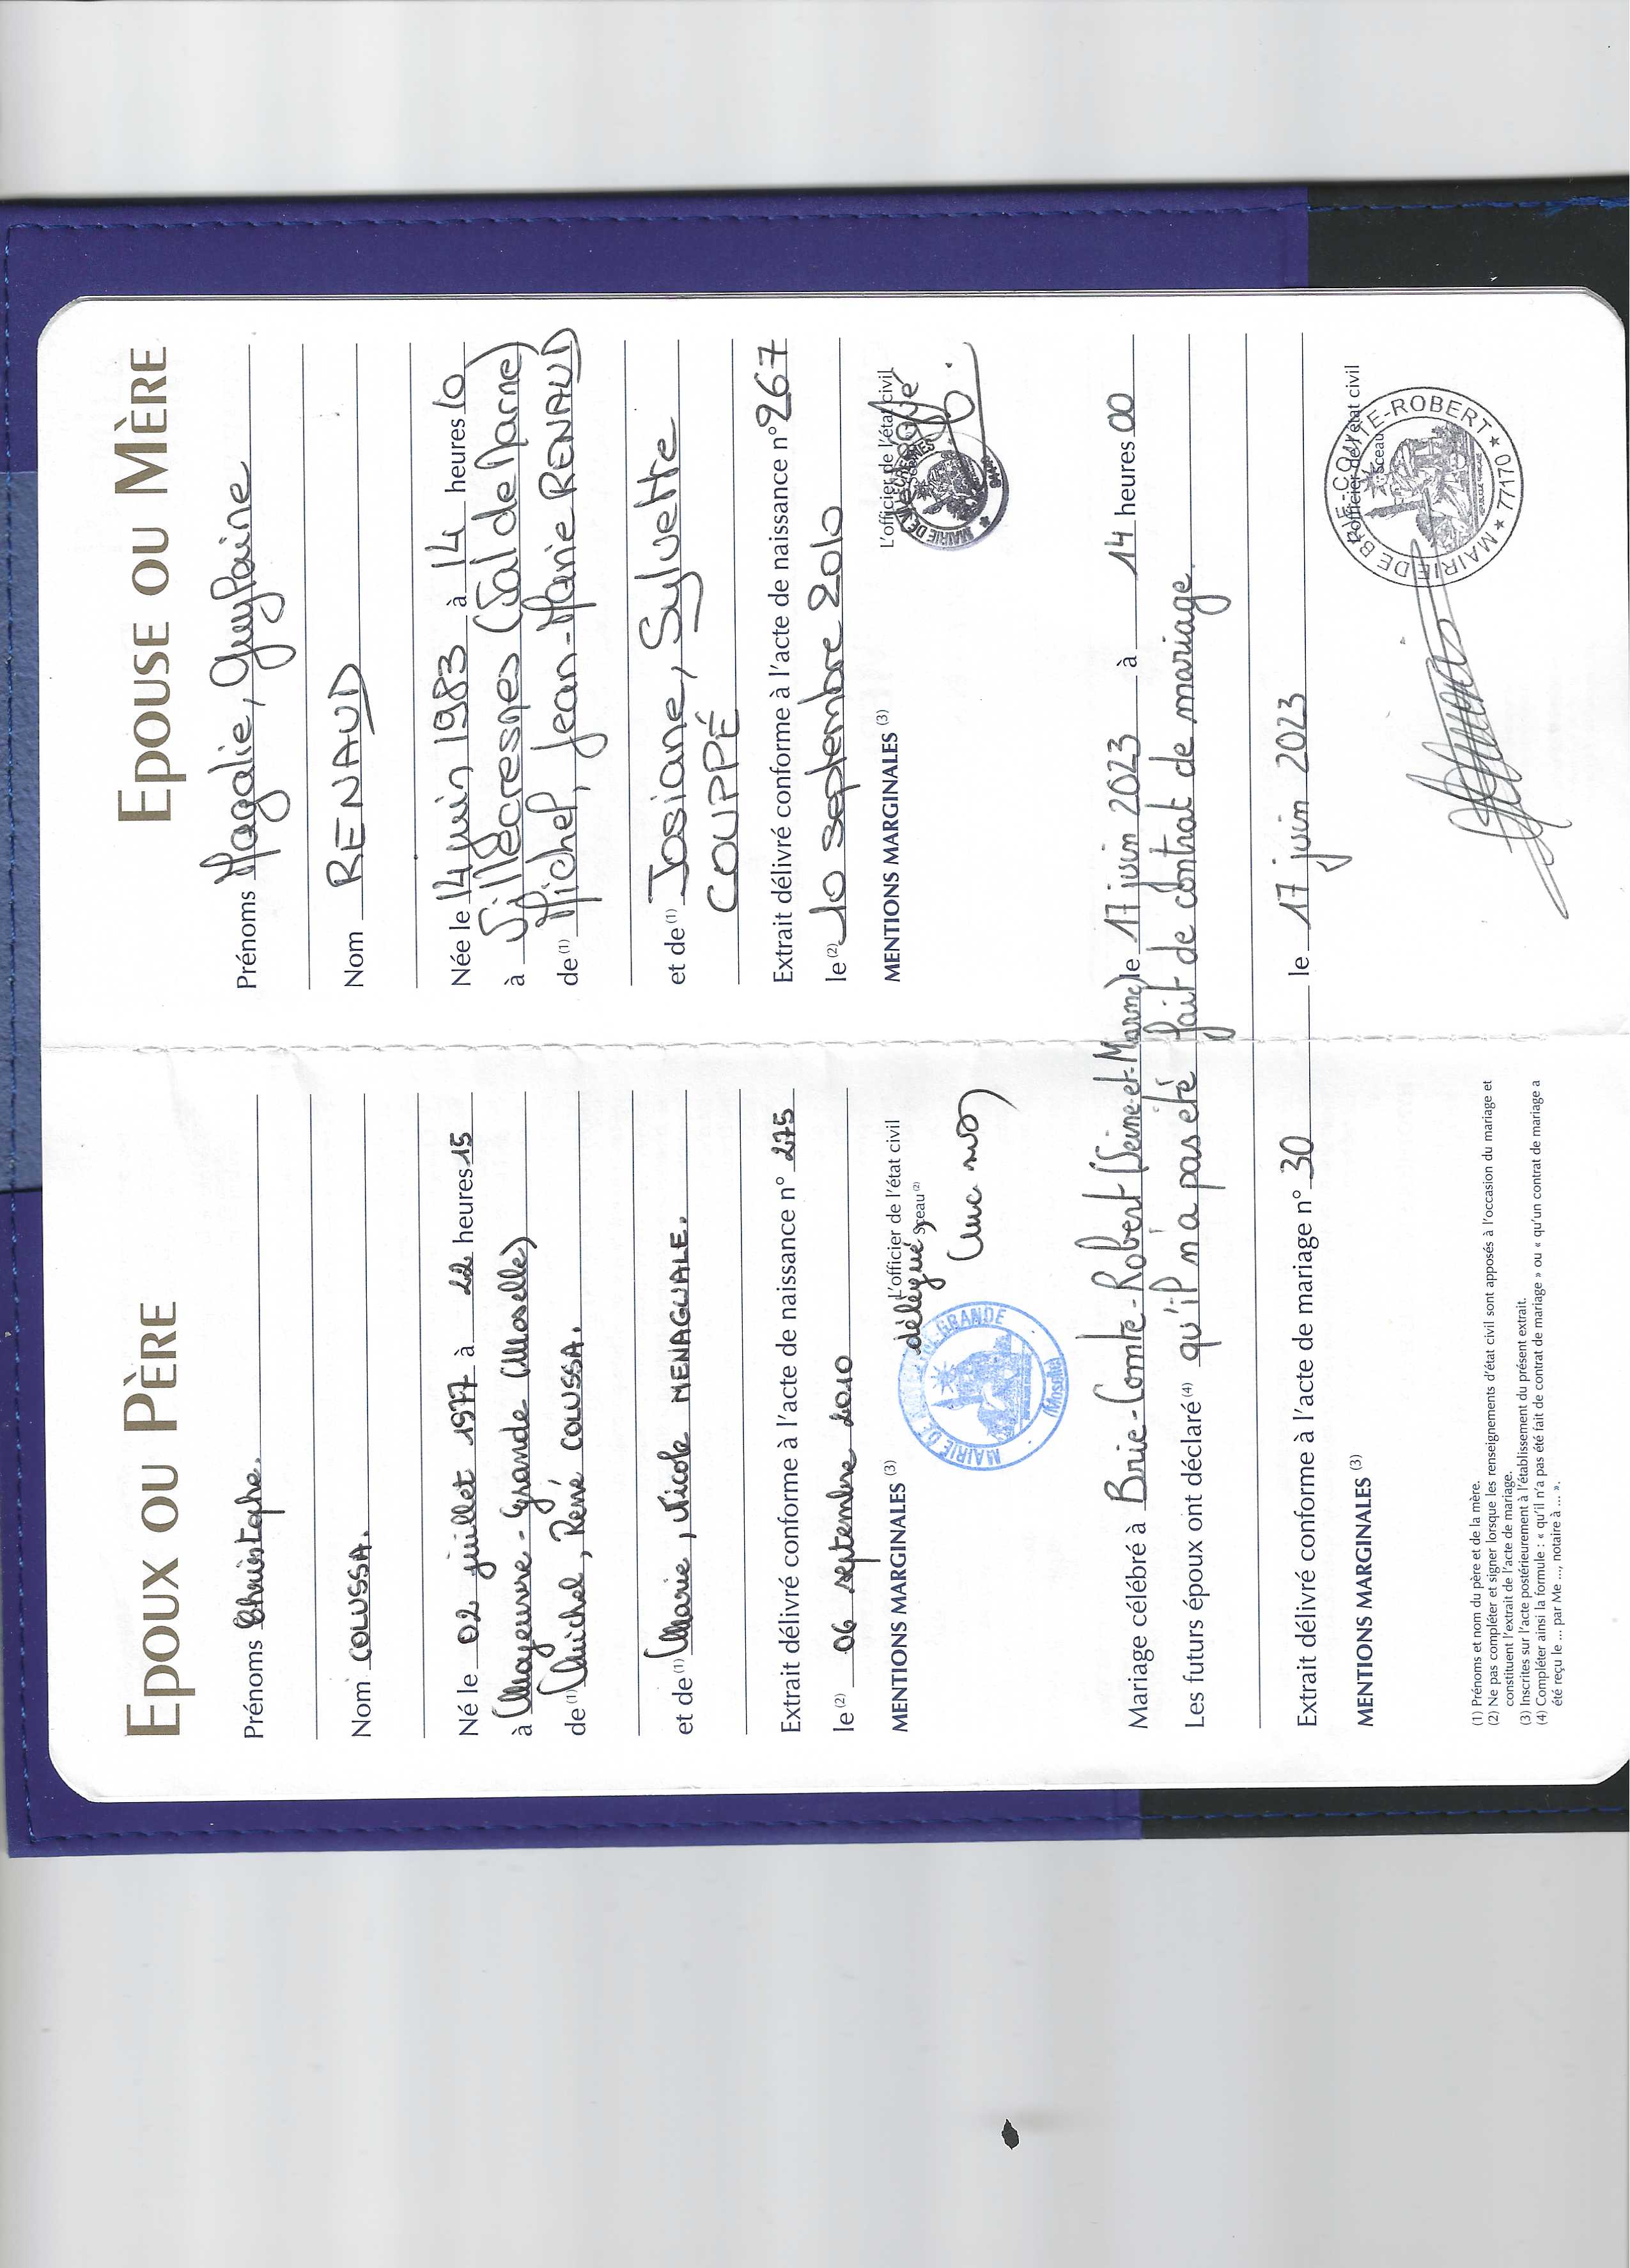 EPOUX OU PÈRE
Prénoms Christophe.
Nom COLUSSA.
Né le 02 juillet 1977 à 22 heures 15
à Moyeuvre-Grande (Moselle)
de (1) Michel, René COLUSSA.
et de (1) Marie, Nicole MENAGUALE.
Extrait délivré conforme à l'acte de naissance n° 275
le (2) 06 septembre 2010
MENTIONS MARGINALES (3)
L'officier de l'état civil
délégué, Sceau (2)
MAIRIE DE GRANDE
(Moselle)
EPOUSE OU MÈRE
Prénoms Magalie, Guylaine
Nom RENAUD
Née le 14 juin 1983 à 14 heures 10
à Villecresnes (Val de Marne)
de (1) Michel, Jean-Marie RENAUD
et de (1) Josiane, Sylvette
COUPPÉ
Extrait délivré conforme à l'acte de naissance n° 267
le (2) 10 septembre 2010
MENTIONS MARGINALES (3)
L'officier de l'état civil
MAIRIE DE
Mariage célébré à Brie-Comte-Robert (Seine-et-Marne) le 17 juin 2023 à 14 heures 00
Les futurs époux ont déclaré (4) qu'il n'a pas été fait de contrat de mariage.
Extrait délivré conforme à l'acte de mariage n° 30 le 17 juin 2023
MENTIONS MARGINALES (3)
L'officier de l'état civil
Sceau
MAIRIE DE BRIE-COMTE-ROBERT
★ 77170 ★
(1) Prénoms et nom du père et de la mère.
(2) Ne pas compléter et signer lorsque les renseignements d'état civil sont apposés à l'occasion du mariage et
constituent l'extrait de l'acte de mariage.
(3) Inscrites sur l'acte postérieurement à l'établissement du présent extrait.
(4) Compléter ainsi la formule : « qu'il n'a pas été fait de contrat de mariage » ou « qu'un contrat de mariage a
été reçu le ... par Me ..., notaire à ... ».